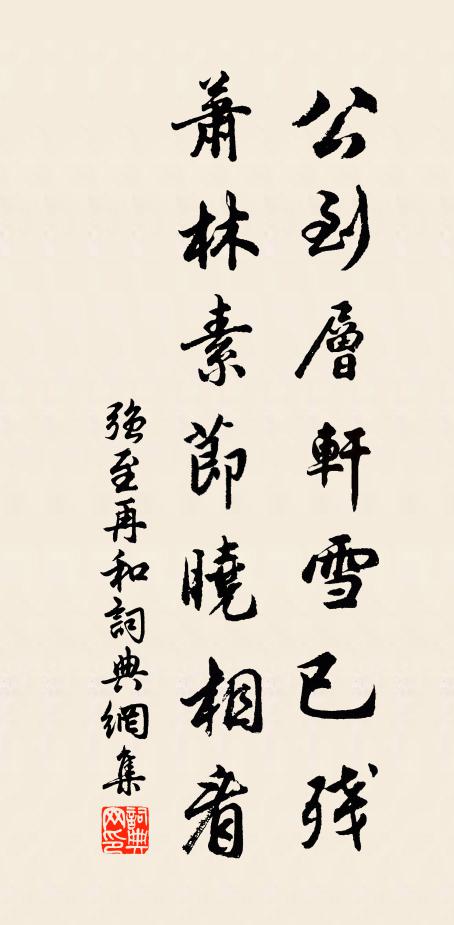 公到層軒雪已残
蕭林素節曉相看
强至再和詞典網集
詞典网印